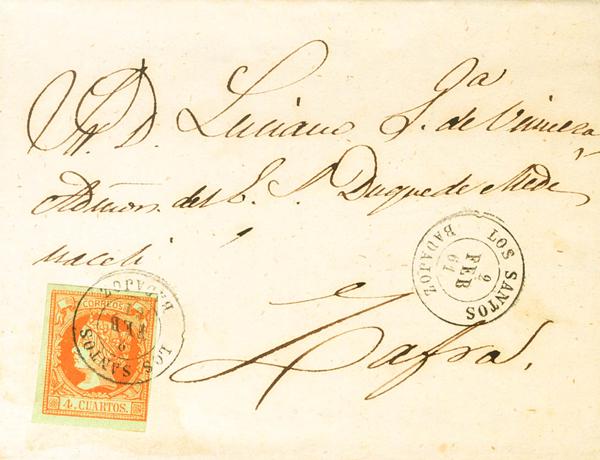 Sr. D. Luciano Ga. de Viniera
Admor. del E. S. Duque de Medi
naceli
Zafra.
LOS SANTOS
BADAJOZ
2
FEB
61
CORREOS
4 CUARTOS.
LOS SANTOS
BADAJOZ
FEB